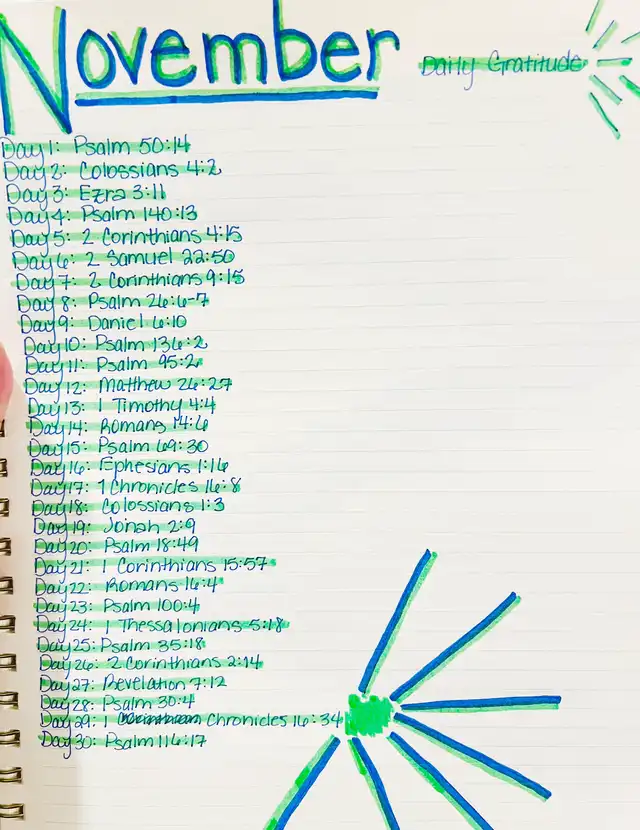 November
Daily Gratitude
Day 1: Psalm 50:14
Day 2: Colossians 4:2
Day 3: Ezra 3:11
Day 4: Psalm 140:13
Day 5: 2 Corinthians 4:15
Day 6: 2 Samuel 22:50
Day 7: 2 Corinthians 9:15
Day 8: Psalm 26:6-7
Day 9: Daniel 6:10
Day 10: Psalm 136:2
Day 11: Psalm 95:2
Day 12: Matthew 26:27
Day 13: 1 Timothy 4:4
Day 14: Romans 14:6
Day 15: Psalm 69:30
Day 16: Ephesians 1:16
Day 17: 1 Chronicles 16:8
Day 18: Colossians 1:3
Day 19: Jonah 2:9
Day 20: Psalm 18:49
Day 21: 1 Corinthians 15:57
Day 22: Romans 16:4
Day 23: Psalm 100:4
Day 24: 1 Thessalonians 5:18
Day 25: Psalm 35:18
Day 26: 2 Corinthians 2:14
Day 27: Revelation 7:12
Day 28: Psalm 30:4
Day 29: 1 Chronicles 16:34
Day 30: Psalm 116:17